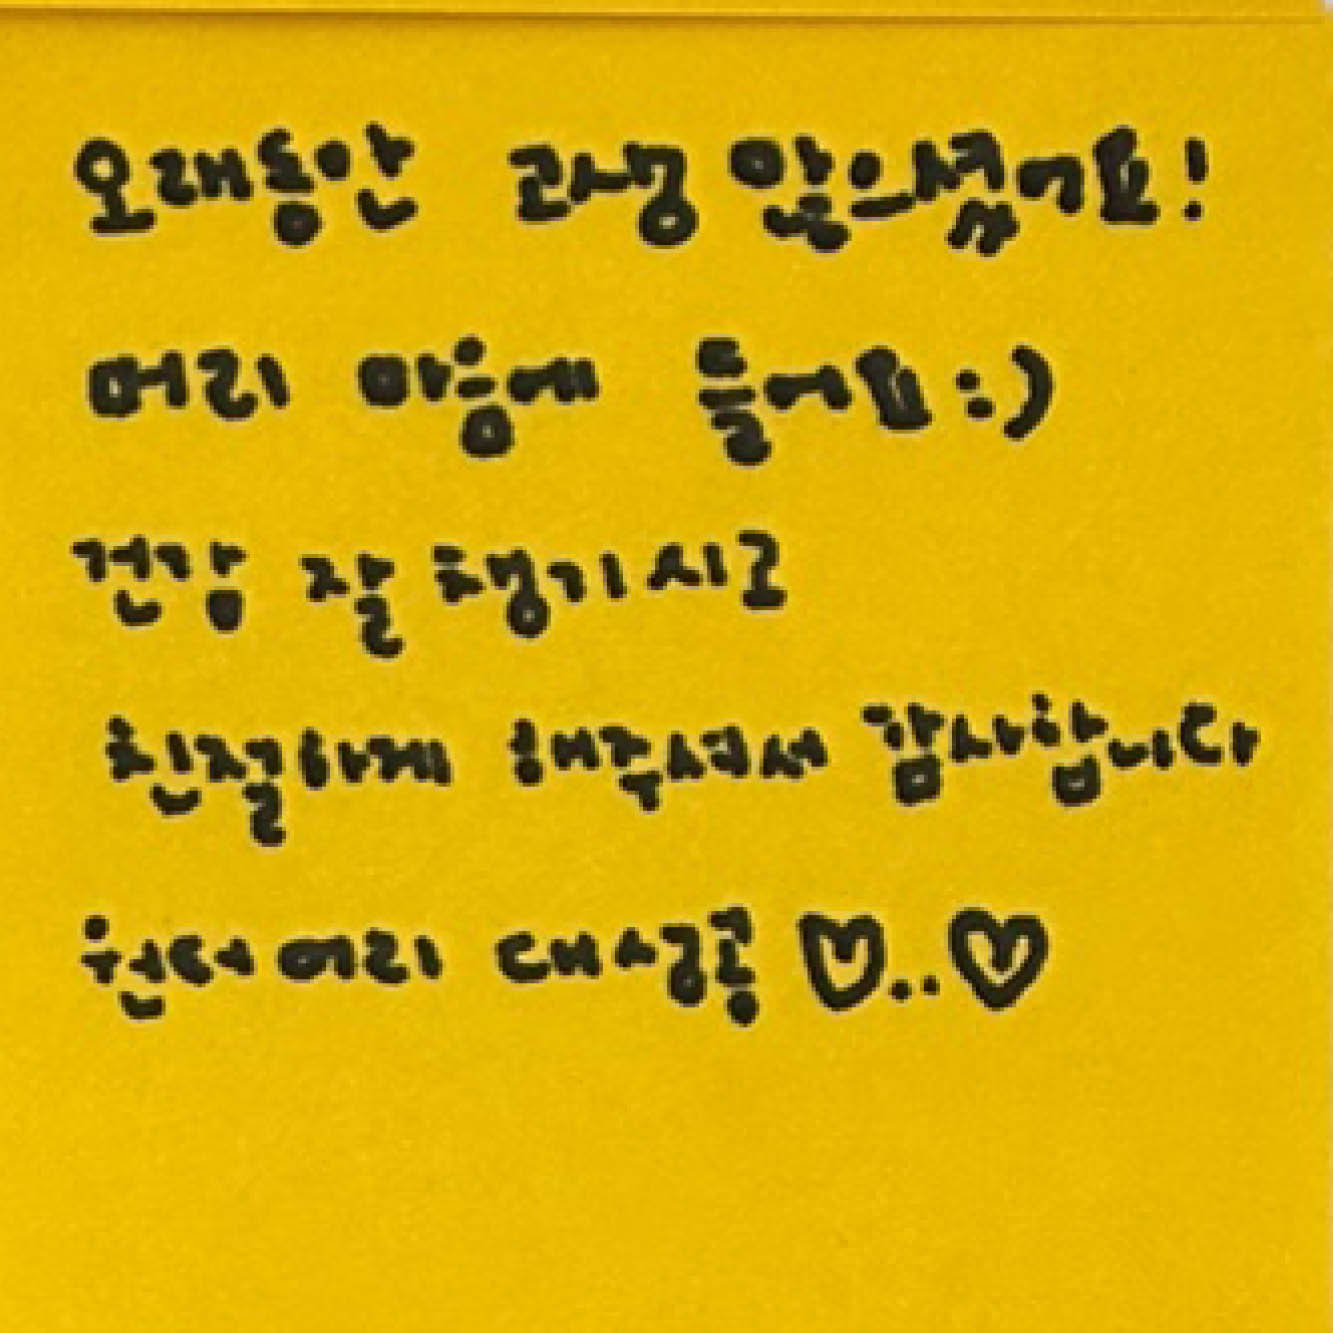 오래동안 고생 많으셨어요!
머리 마음에 들어요 :)
건강 잘 챙기시고
친절하게 해주셔서 감사합니다
천터머리 대성공 ♡..♡